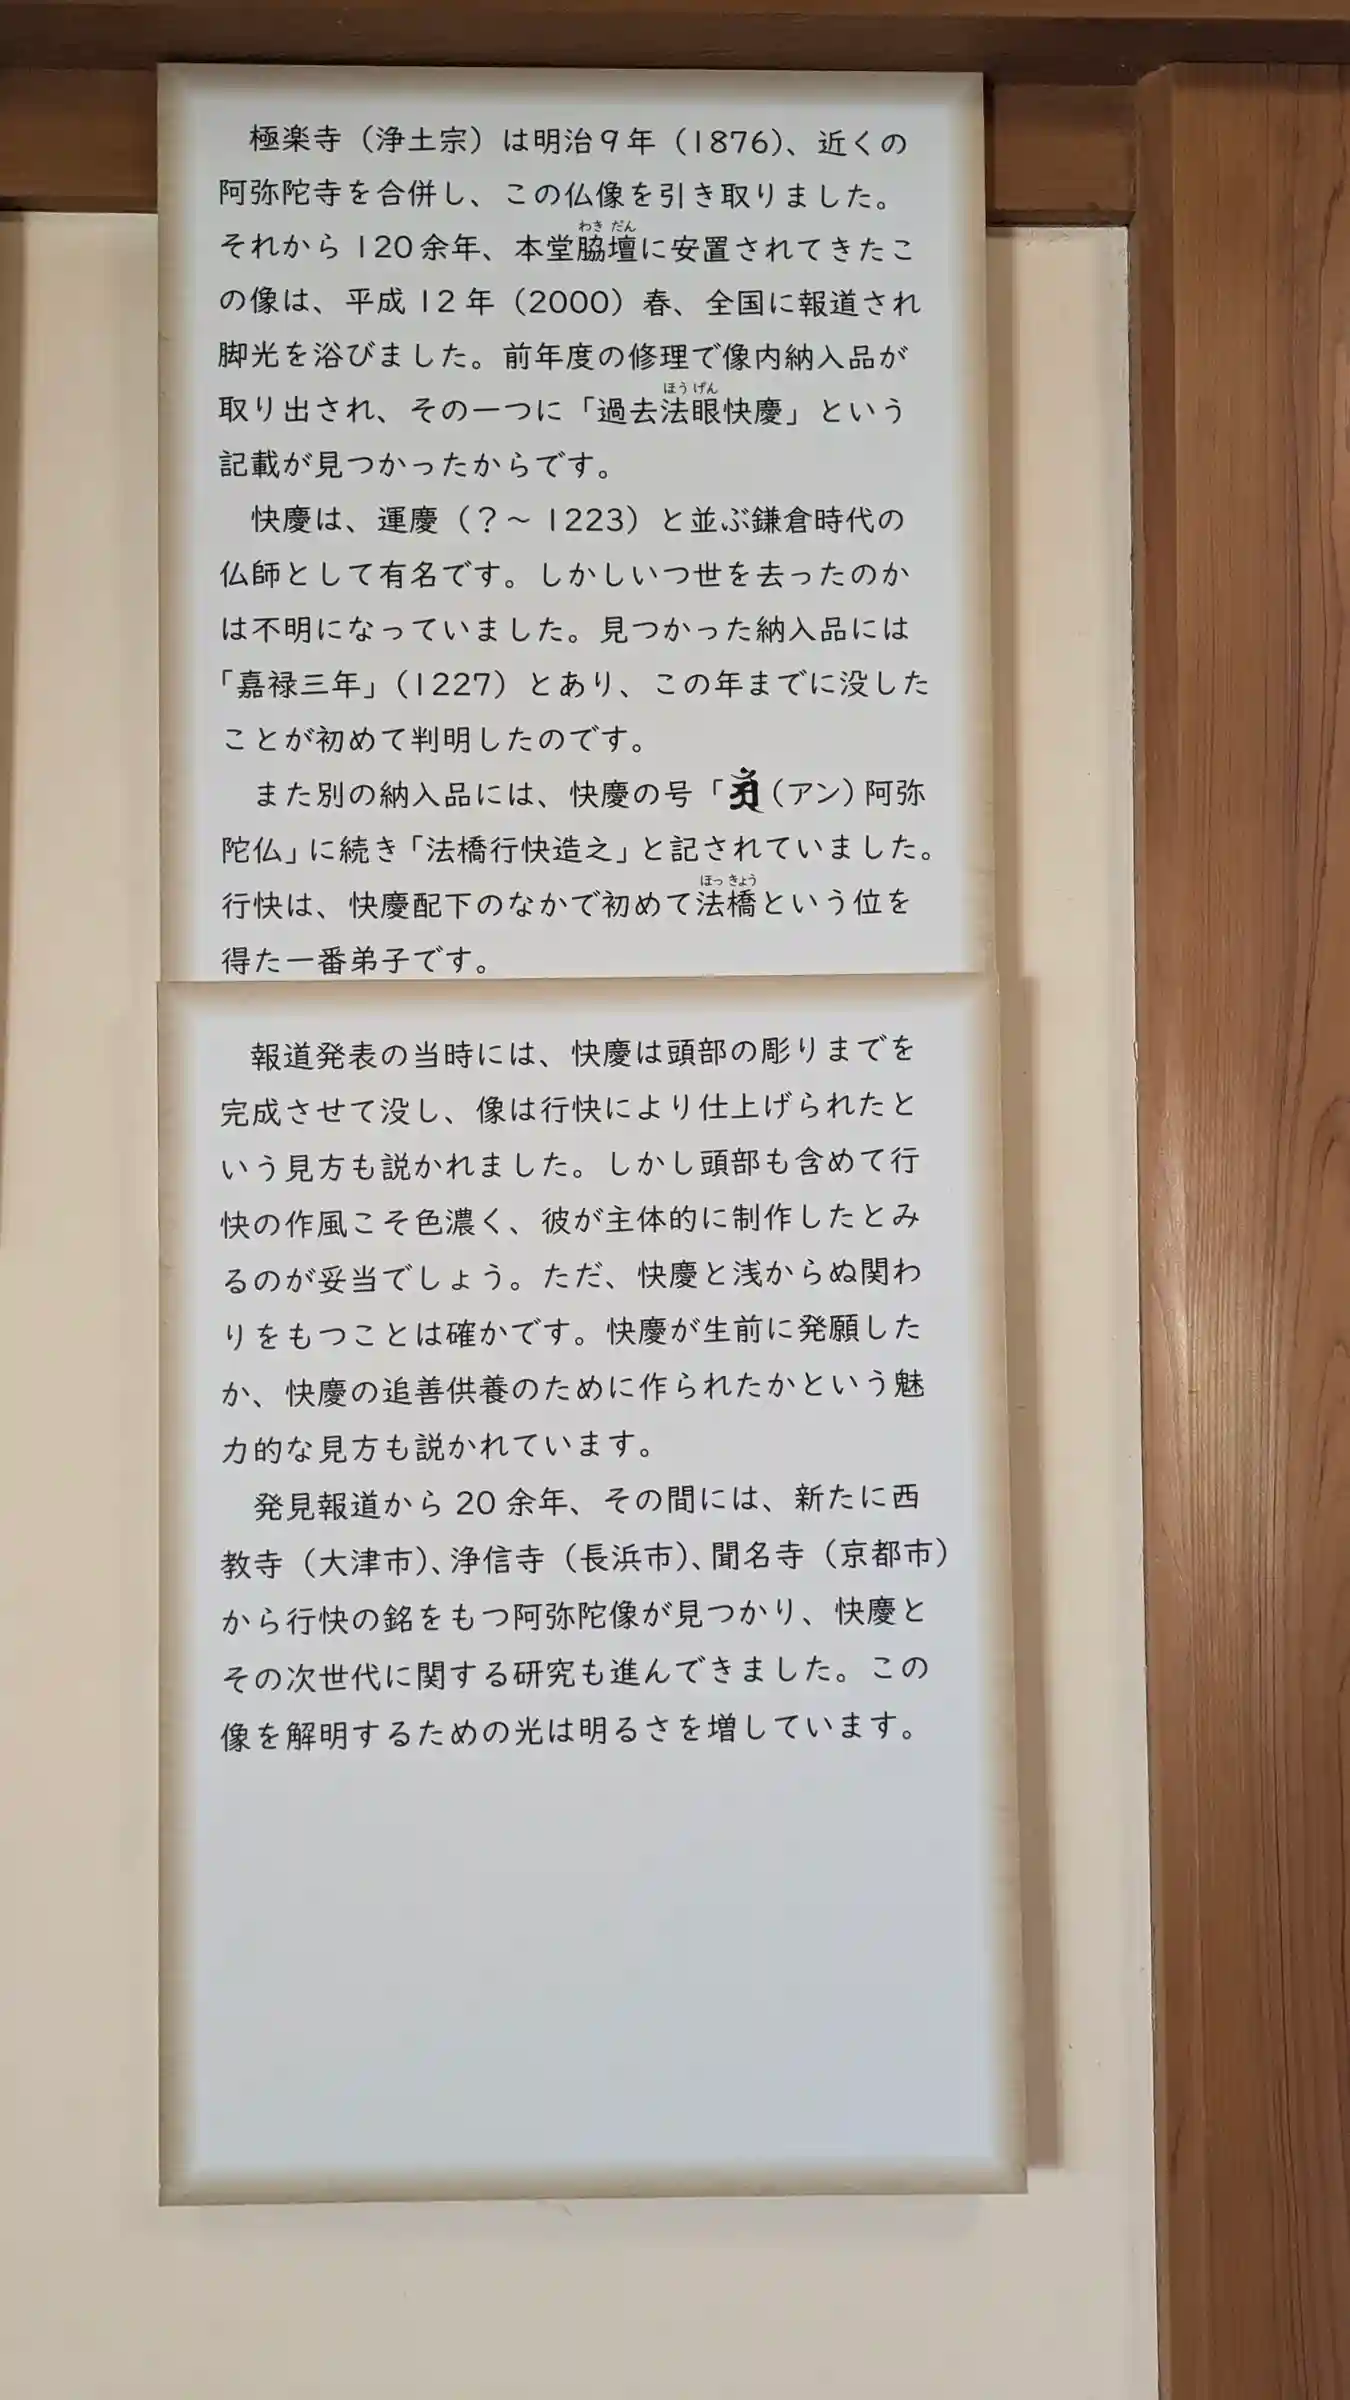 極楽寺（浄土宗）は明治９年（1876）、近くの
阿弥陀寺を合併し、この仏像を引き取りました。
わき だん
それから 120 余年、本堂脇壇に安置されてきたこ
の像は、平成 12 年（2000）春、全国に報道され
脚光を浴びました。前年度の修理で像内納入品が
ほう げん
取り出され、その一つに「過去法眼快慶」という
記載が見つかったからです。
快慶は、運慶（？～ 1223）と並ぶ鎌倉時代の
仏師として有名です。しかしいつ世を去ったのか
は不明になっていました。見つかった納入品には
「嘉禄三年」（1227）とあり、この年までに没した
ことが初めて判明したのです。
また別の納入品には、快慶の号「（アン）阿弥
陀仏」に続き「法橋行快造之」と記されていました。
ほっ きょう
行快は、快慶配下のなかで初めて法橋という位を
得た一番弟子です。
報道発表の当時には、快慶は頭部の彫りまでを
完成させて没し、像は行快により仕上げられたと
いう見方も説かれました。しかし頭部も含めて行
快の作風こそ色濃く、彼が主体的に制作したとみ
るのが妥当でしょう。ただ、快慶と浅からぬ関わ
りをもつことは確かです。快慶が生前に発願した
か、快慶の追善供養のために作られたかという魅
力的な見方も説かれています。
発見報道から 20 余年、その間には、新たに西
教寺（大津市）、浄信寺（長浜市）、聞名寺（京都市）
から行快の銘をもつ阿弥陀像が見つかり、快慶と
その次世代に関する研究も進んできました。この
像を解明するための光は明るさを増しています。